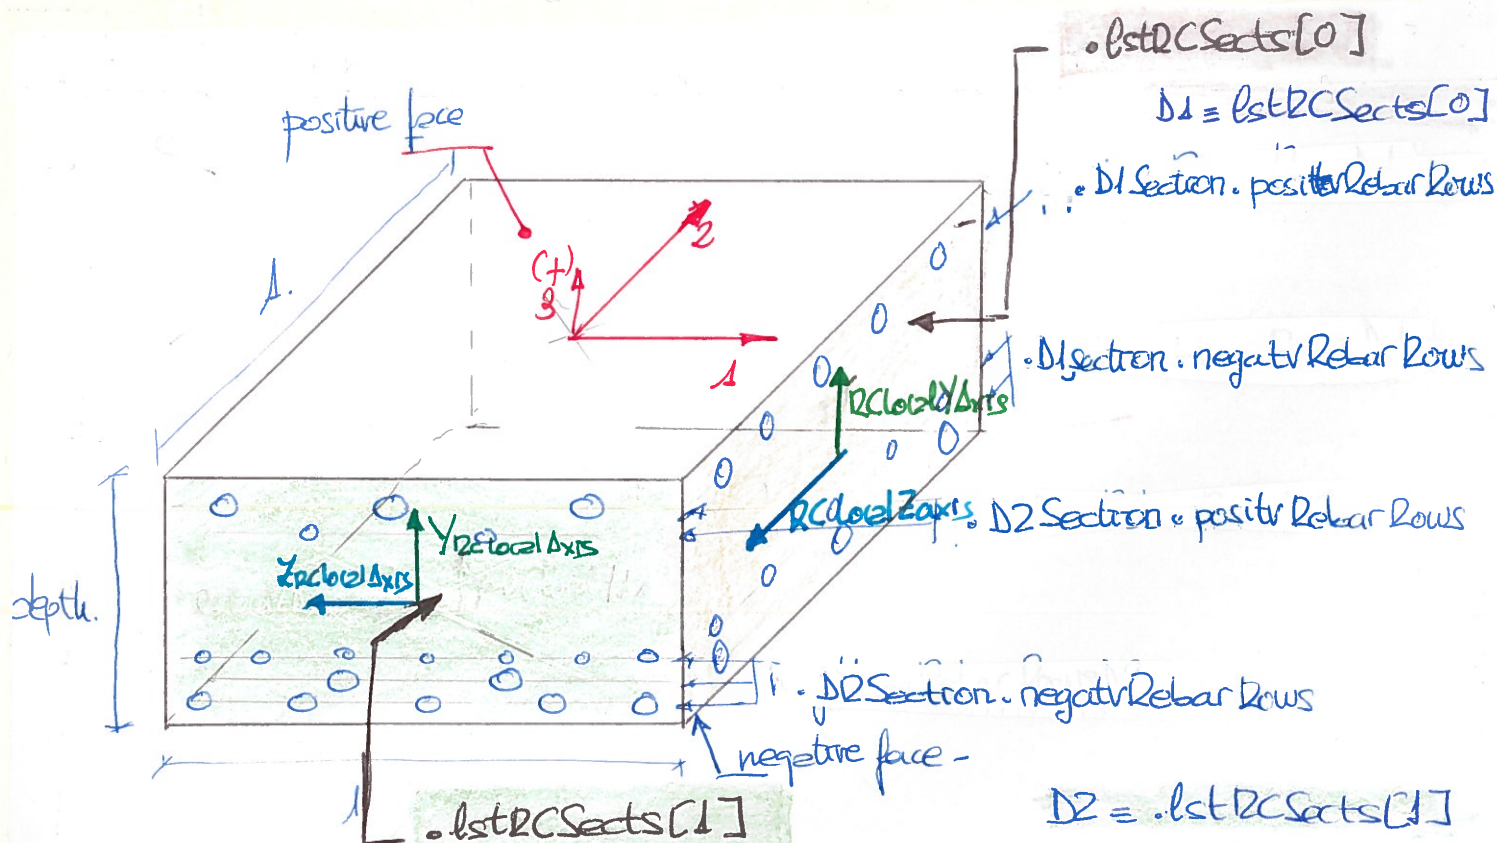 .lstRCSects[0]
D1 ≡ lstRCSects[0]
positive face
. D1Section.positvRebarRows
2
(+)
3
1.
1
. D1section.negatvRebarRows
RClocalYAxis
RClocalZaxis
. D2Section.positvRebarRows
YRClocalAxis
ZRClocalAxis
depth.
. D2Section.negatvRebarRows
negative face -
1
.lstRCSects[1]
D2 = .lstRCSects[1]